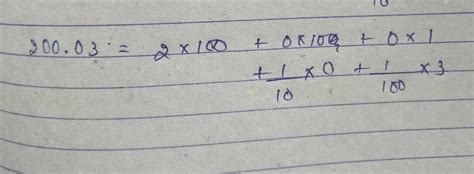 200.03 = 2×100 + 0×10 + 0×1
+ 1/10 ×0 + 1/100 ×3